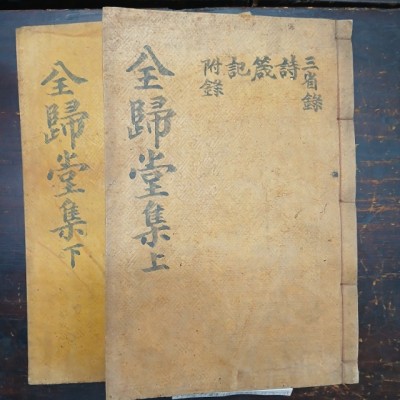 三省錄
詩
箴
記
附錄
全歸堂集上
全歸堂集下